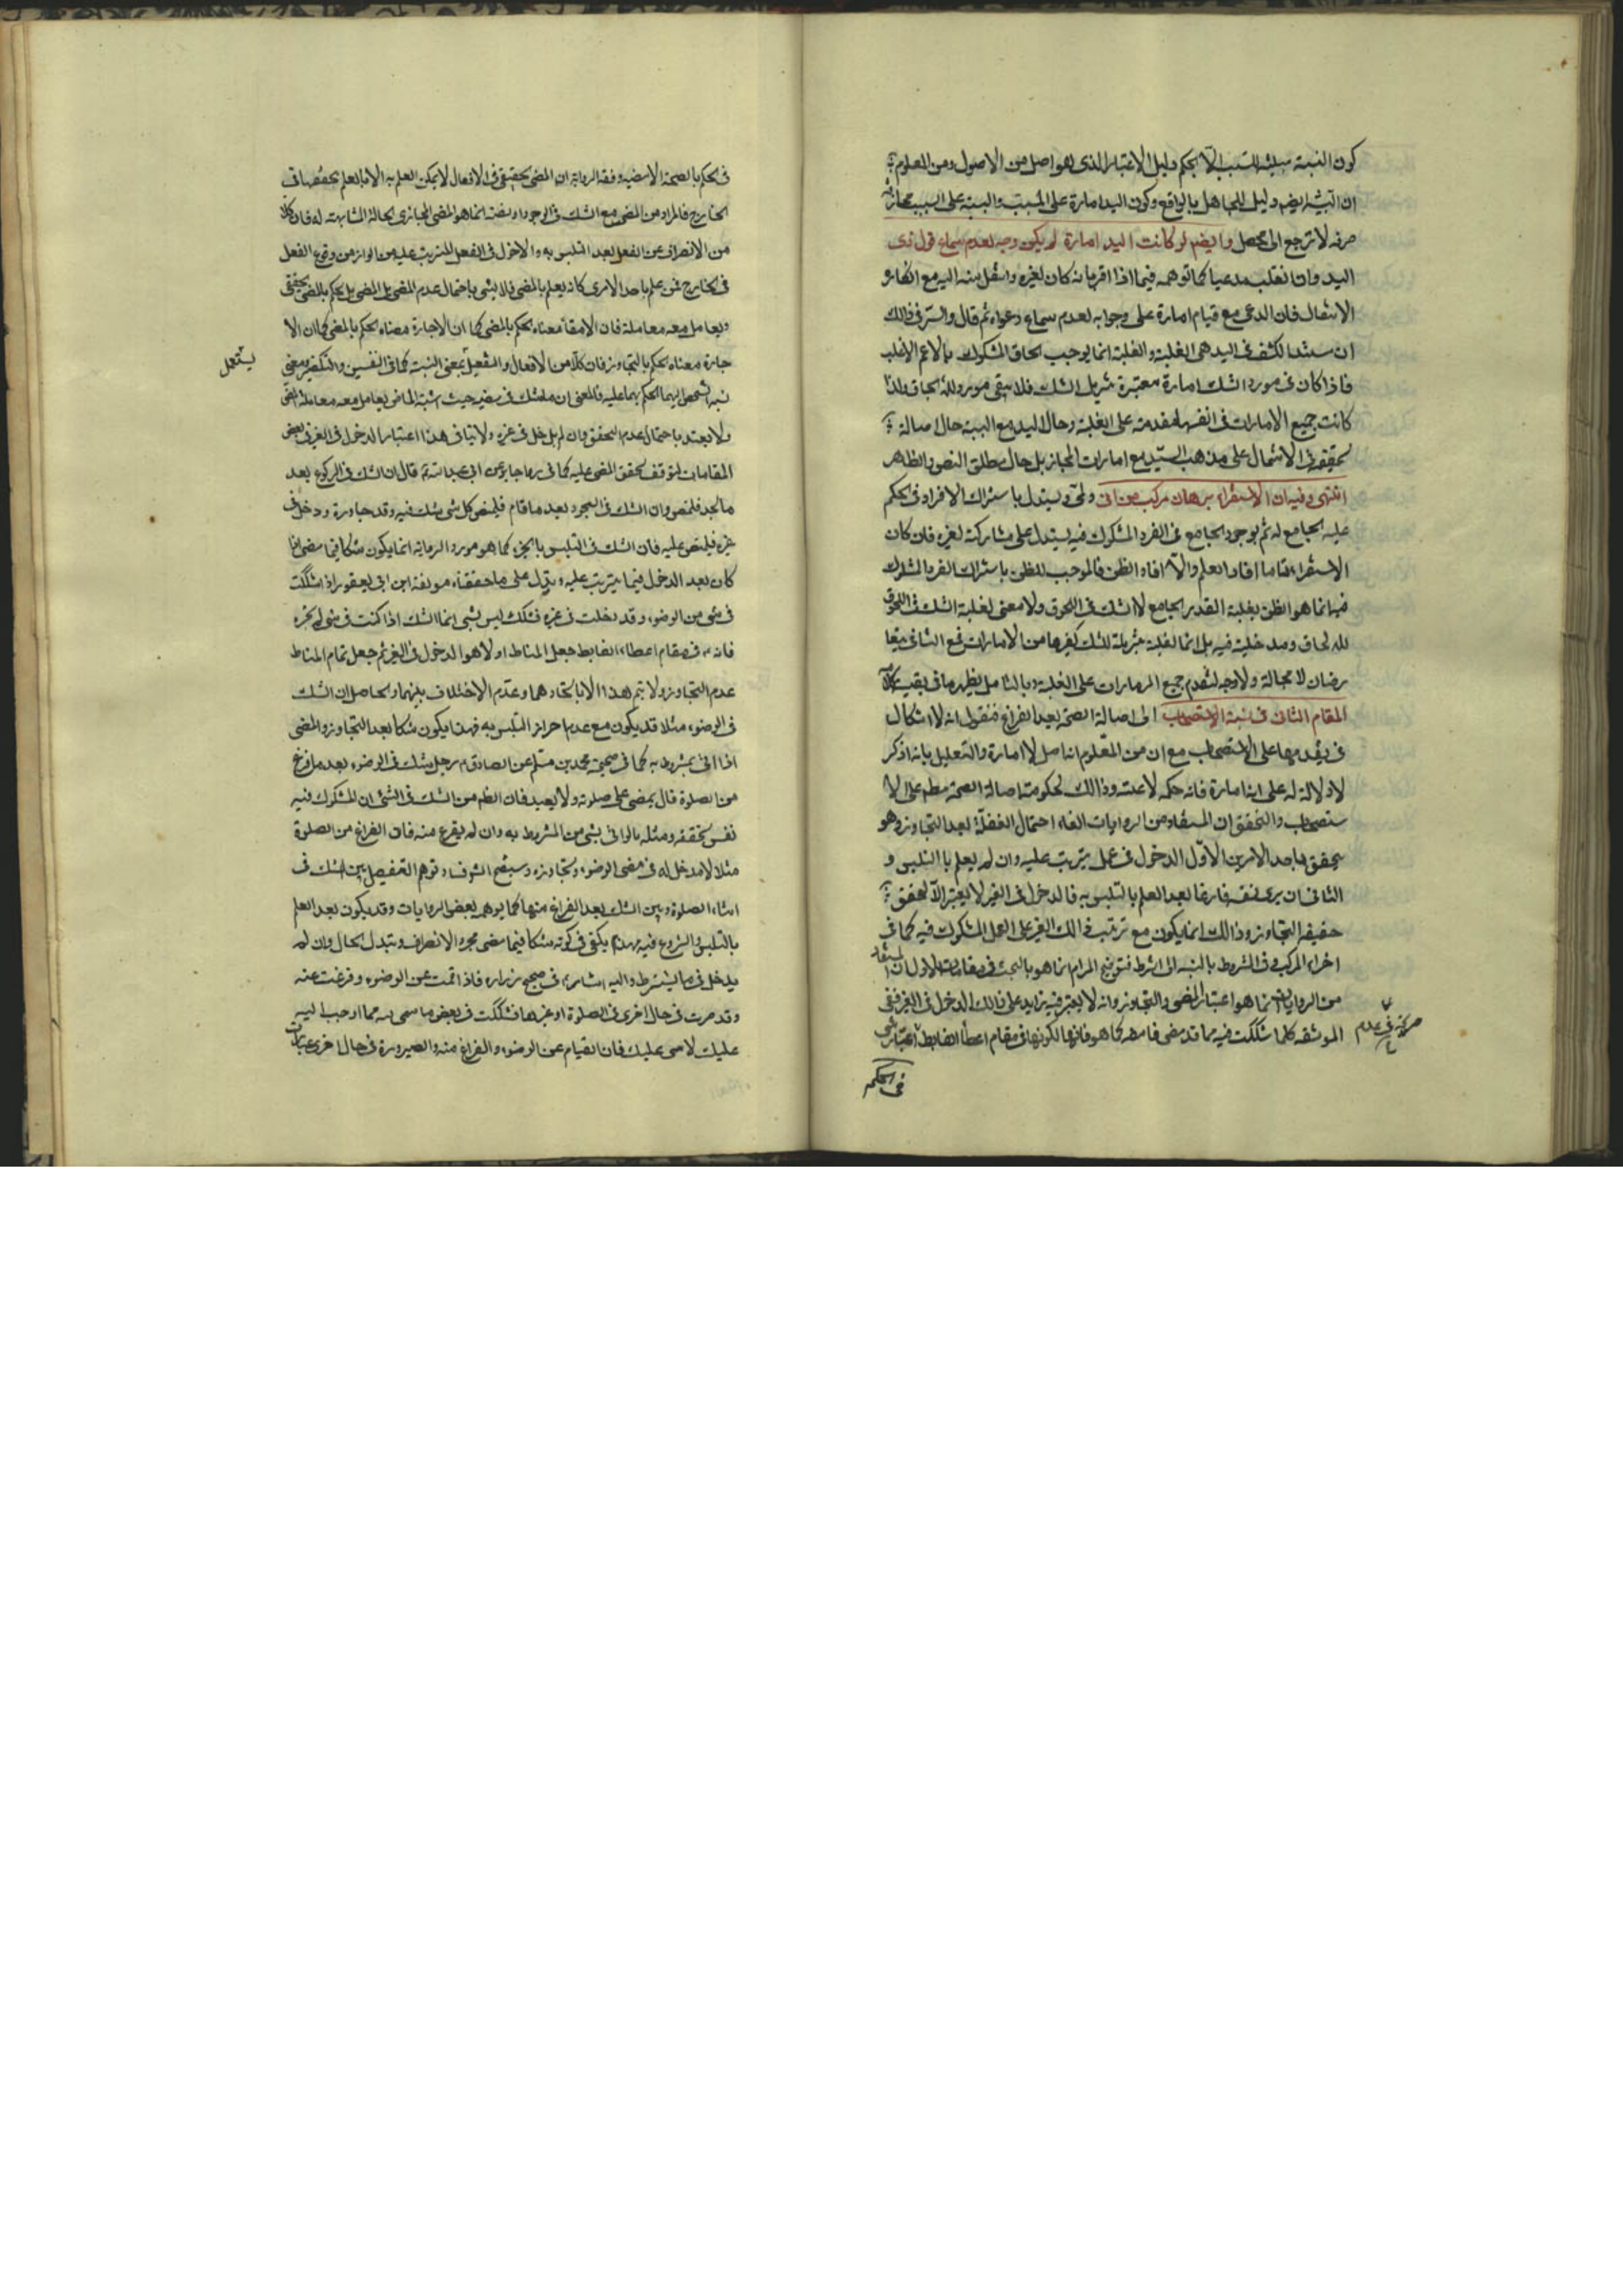 كون النسبة مثبتة للسبب الا بحكم دليل الاعتبار الذى هو اصل من الاصول ومن المعلوم
ان البينة ايضم دليل للجاهل بالواقع وكون اليد امارة على السببية البينة على السبب مجازفة
صرفه لا ترجع الى محصل وايضم لو كانت اليد امارة لم يكن وجه لعدم سماع قول ذى
اليد وان انقلب مدعيا كما توهمه فيما اذا اقر بانه كان لغيره وانتقل منه اليه مع انكار
الانتقال فان الدعى مع قيام امارة على وجوبه لعدم سماع دعواه ثم قال والسر فى ذالك
ان مستند الكشف فى اليد هى الغلبة والغلبة انما يوجب الحاق المشكوك بالاعم الاغلب
فاذا كان فى مورد الشك امارة معتبرة تزيل الشك فلا يبقى مورد للالحاق ولذا
كانت جميع الامارات فى انفسها مقدمة على الغلبة وحال اليد مع البينة حال اصالة
الحقيقة فى الاستعمال على مذهب السيد مع امارات المجاز بل حال مطلق النص والظاهر
انتهى وفيه ان الاستقراء برهان مركب من انى ولمى ويستدل باشتراك الافراد فى الحكم
عليه الجامع له ثم بوجود الجامع فى الفرد المشكوك فيه يستدل على مشاركته لغيره فان كان
الاستقراء تاما افاد العلم والا افاد الظن فالموجب للظن باشتراك الفرد المشكوك
فيه انما هو الظن بغلبة القدر الجامع لا الشك فى اللحوق ولا معنى لغلبة الشك فى اللحوق
للالحاق ومدخلية فيه بل انما الغلبة مزيلة للشك كغيرها من الامارات فمع الثانى يتعا
رضان لا محالة ولا وجه لتقدم جميع الامارات على الغلبة وبالتامل يظهر ما فى بقية كلامه
المقام الثانى فى نسبة الاستصحاب الى اصالة الصحة بعد الفراغ فنقول انه لا اشكال
فى تقديمها على الاستصحاب مع ان من المعلوم انه اصل لا امارة والتعليل بانه اذكر
لا دلالة له على انها امارة فانه حكمة لا علة وذالك لحكومة اصالة الصحة مطم على الا
ستصحاب والتحقق ان المستفاد من الروايات الغاء احتمال الغفلة بعد التجاوز وهو
يتحقق باحد الامرين الاول الدخول فى عمل يترتب عليه وان لم يعلم بالتلبس و
الثانى ان يرى نفسه فارغا بعد العلم بالتلبس به فالدخول فى الغير لا يعتبر الا لتحقق
حقيقة التجاوز وذالك انما يكون مع ترتب ذالك الغير على العمل المشكوك فيه كما فى
اجزاء المركب وفى المشروط بالنسبة الى الشرط فتوضيح المرام انما هو بالبحث فى مقامات الاول ان المستفاد
من الروايات انما هو اعتبار المضى والتجاوز وانه لا يعتبر فيه زايد على ذالك الدخول فى الغير ففى
الموثقة كلما شككت فيه مما قد مضى فامضه كما هو فانها لكونها فى مقام اعطاء الضابط اعتبار شى
صريحة فى عدم
فى الحكم
فى الحكم بالصحة الا مضيه وفقه الرواية ان المضى الحقيقى فى الافعال لا يمكن العلم به الا بالعلم بتحققها فى
الخارج فالمراد من المضى مع الشك فى الوجود او صفته انما هو المضى المجازى لحالة المشابهة له فان كلا
من الانصراف عن الفعل بعد التلبس به والدخول فى الفعل المترتب عليه من لوازم وقوع الفعل
فى الخارج فمن علم باحد الامرين كانه يعلم بالمضى فلا يعتنى باحتمال عدم المضى بل يحكم بالمضى الحقيقى
ويعامل معه معاملة فان الامضاء معناه الحكم بالمضى كما ان الاجازة معناه الحكم بالمضى كما ان الا
جازة معناه الحكم بالتجاوز فان كلا من الافعال والتفعيل يستعمل بمعنى النسبة كما فى التفسيق والتكفير بمعنى
نسبة الشخص اليهما الحكم بهما عليه فالمعنى ان ما شك فى مضيه حيث اشبه الماضى يعامل معه معاملة المضى
ولا يعتد باحتمال عدم التحقق وان لم يدخل فى غيره ولا ينافى هذا اعتبار الدخول فى الغير فى بعض
المقامات لتوقف تحقق المضى عليه كما فى رواية جابر عن ابى عبد الله ع قال ان شك فى الركوع بعد
ما سجد فليمض وان شك فى السجود بعد ما قام فليمض كل شى شك فيه وقد جاوزه ودخل فى
غيره فليمض عليه فان الشك فى التلبس بالجزء كما هو مورد الرواية انما يكون شكا فيما مضى اذا
كان بعد الدخول فيما يترتب عليه ويدل على ما حققناه موثقة ابن ابى يعفور اذا شككت
فى شى من الوضوء وقد دخلت فى غيره فشكك ليس بشى انما الشك اذا كنت فى شى لم تجزه
فانه ع فى مقام اعطاء الضابط جعل المناط اولا هو الدخول فى الغير ثم جعل تمام المناط
عدم التجاوز ولا يتم هذا الا باتحادهما وعدم الاختلاف بينهما والحاصل ان الشك
فى الوضوء مثلا قد يكون مع عدم احراز التلبس به فهذا يكون شكا بعد التجاوز والمضى
اذا اتى بمشروط به كما فى صحيحة محمد بن مسلم عن الصادق ع رجل شك فى الوضوء بعد ما فرغ
من الصلوة قال يمضى على صلوته ولا يعيد فان الظم من الشك فى الشئ ان المشكوك فيه
نفس تحققه ومثله ما لو اتى بشى من المشروط به وان لم يفرغ منه فان الفراغ من الصلوة
مثلا لا مدخل له فى مضى الوضوء وتجاوزه وسيتضح انشم فساد توهم التفصيل بين الشك فى
اثناء الصلوة وبين الشك بعد الفراغ منها كما يوهمه بعض الروايات وقد يكون بعد العلم
بالتلبس والشروع فيه فهذا يكفى فى كونه شكا فيما مضى مجرد الانصراف وتبدل الحال وان لم
يدخل فى ما يشترط واليه اشار ع فى صحيح زرارة فاذا قمت عن الوضوء وفرغت عنه
وقد صرت فى حال اخرى فى الصلوة او غيرها فشككت فى بعض ما سمى الله مما اوجب الله
عليك لا شى عليك فان القيام عن الوضوء والفراغ منه والصيرورة فى حال اخرى عبارات
يستعمل